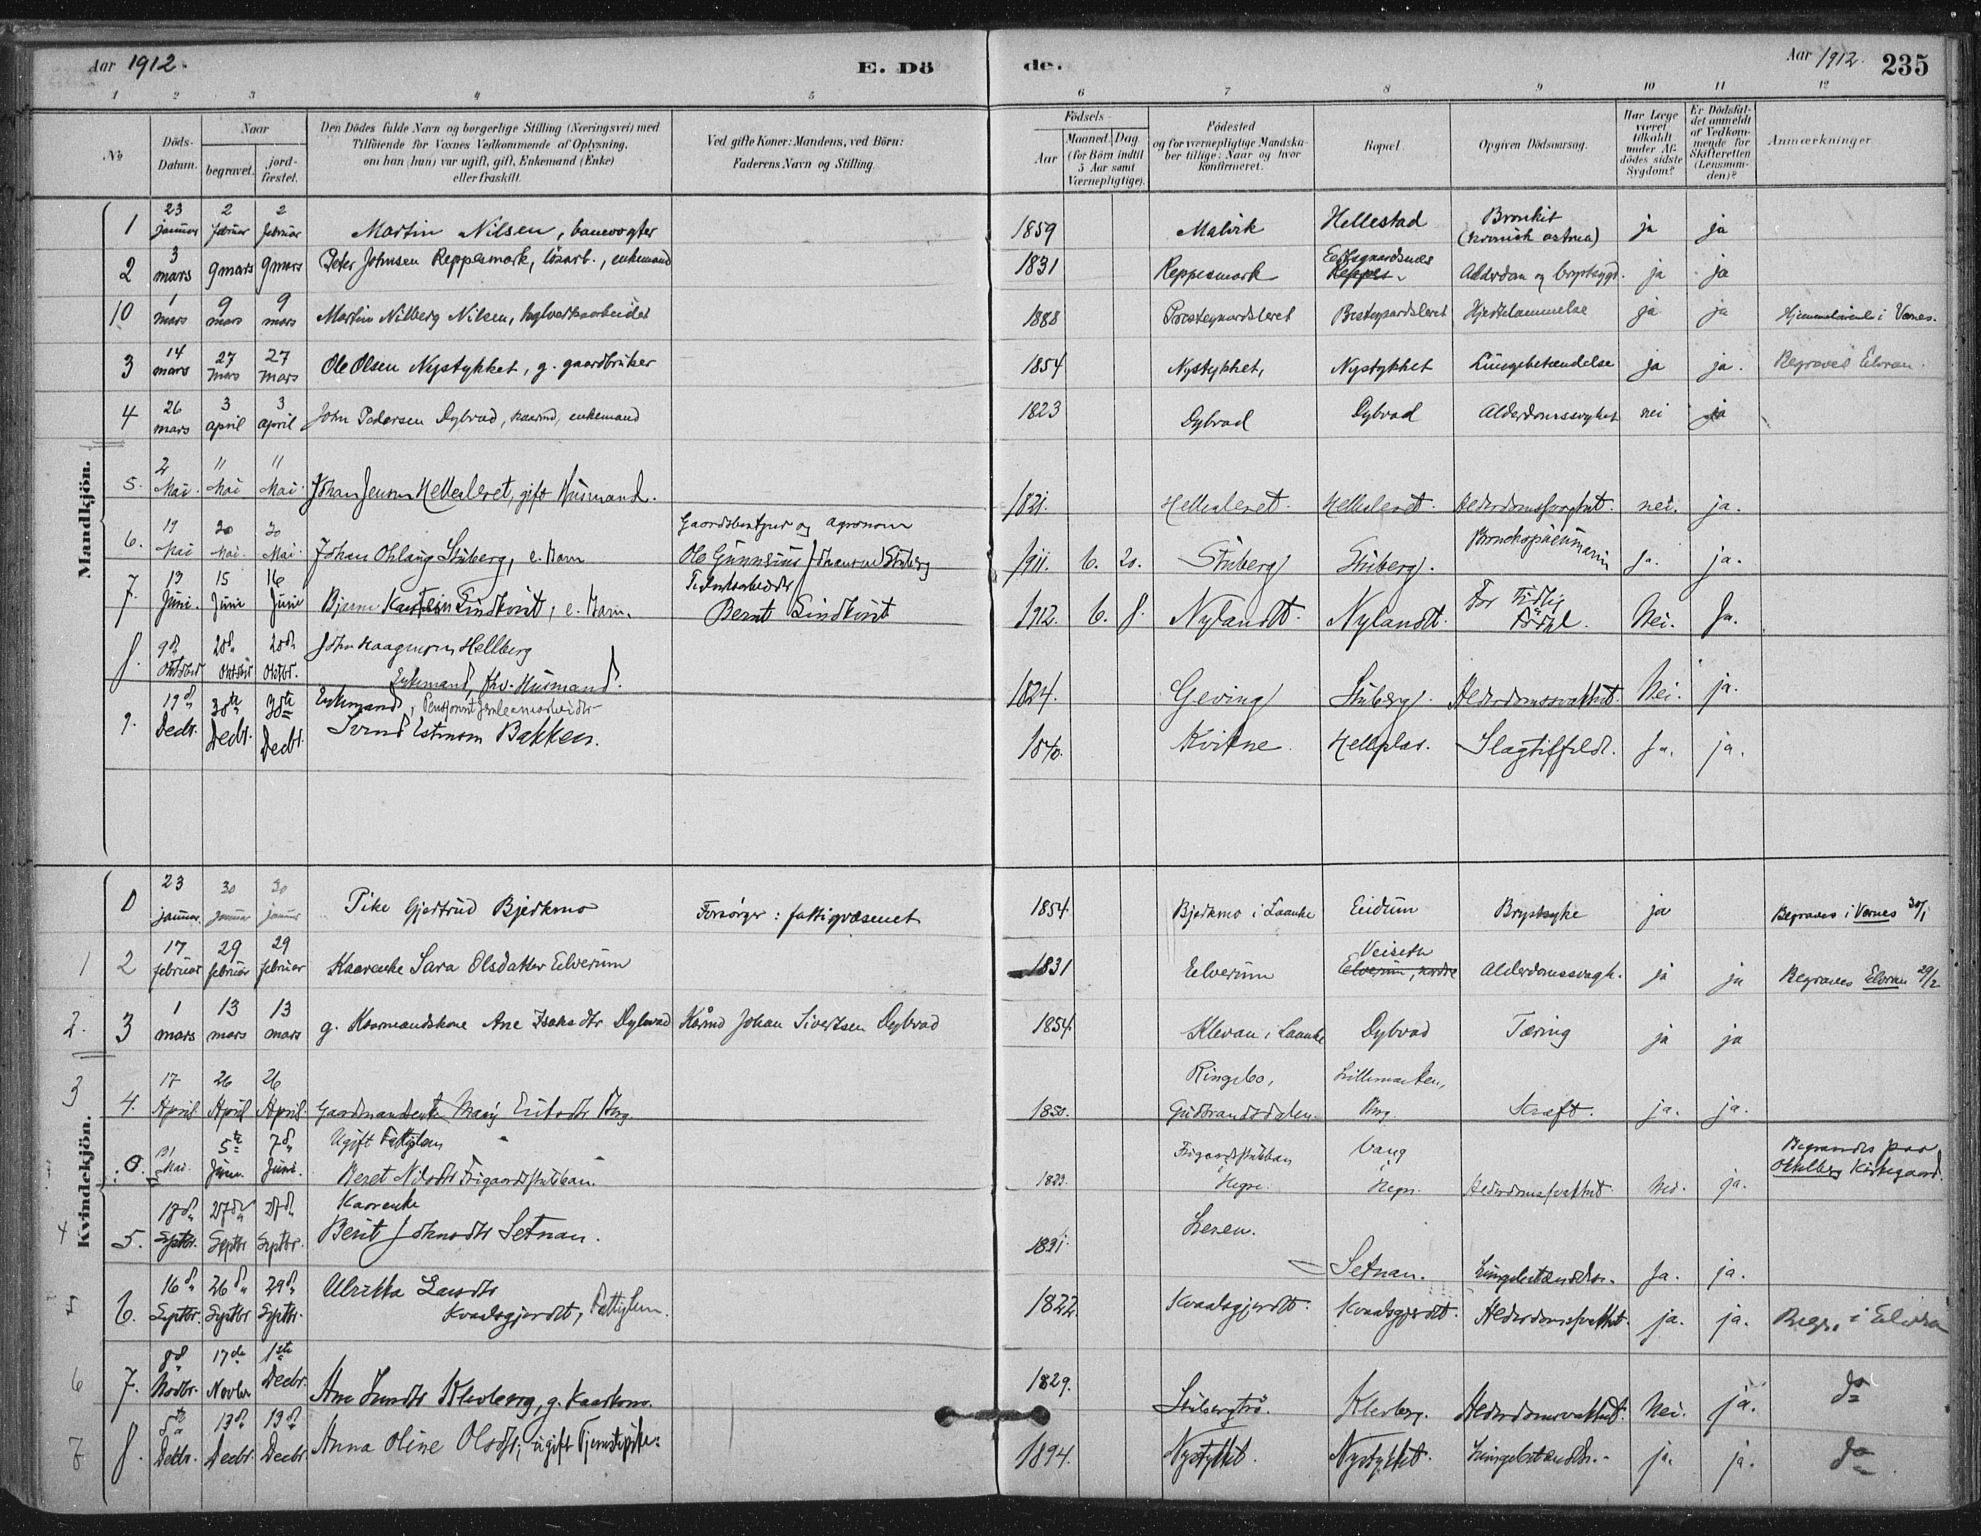 Aar 1912. E. Dö de. Aar 1912. 235
1 2 3 4 5 6 7 8 9 10 11 12
No Döds-Datum. Naar begravet. jord-fæstet. Den Dödes fulde Navn og borgerlige Stilling (Næringsvei) med Tilföiende for Voxnes Vedkommende af Oplysning, om han (hun) var ugift, gift, Enkemand (Enke) eller fraskilt. Ved gifte Koner: Mandens, ved Börn: Faderens Navn og Stilling. Födsels- Aar Maaned. Dag. (for Börn indtil 5 Aar samt Værnepligtige). Födested og for værnepligtige Mandskaber tillige: Naar og hvor konfirmeret. Bopæl. Opgiven Dödsaarsag. Har Læge været tilkaldt under Afdödes sidste Sygdom? Er Dödsfaldet anmeldt af Vedkommende for Skifteretten (Lensmanden)? Anmærkninger
Mandkjön.
1 23 januar 2 februar 2 februar Martin Nilsen, banevogter 1859 Malvik Hellestad Bronkit (kronisk astma) ja ja
2 3 mars 9 mars 9 mars Peter Johnsen Reppesmark, lösarb., enkemand 1831 Reppesmark Reppes Alderdom og brystsygd. ja ja
10 1 mars 9 mars 9 mars Martin Nilberg Nilsen, 1888 Prestegaardsleret Prestegaardsleret Hjertelammelse ja ja Værnes.
3 14 mars 27 mars 27 mars Ole Olsen Nystykket, g. gaardbruker 1854 Nystykket, Nystykket Lungebetændelse ja ja. Begraves Elvran.
4 26 mars 3 april 3 april John Pedersen Dybvad, kaarmd, enkemand 1823 Dybvad Dybvad Alderdomssvykket nei ja
5. 2 Mai. 11 Mai 11 Mai. Johan Jensen Hellesleret, gift Husmand. 1821. Hellesleret. Hellesleret. nei. ja.
6. 19 Mai 30 Mai. 30 Mai. Johan Ohlaug Stuberg, e. Barn Gaardsbestyrer og agronom Ole Gunnerius Stuberg 1911. 6. 20. Stuberg Stuberg. Bronchopneumoni Ja. ja.
7. 13 Juni. 15 Juni 16 Juni Bjarne Lindkvist, e. Barn. Bernt Lindkvist 1912. 6. 8. Nylandt. Nylandt. For Tidlig Född. Nei. Ja.
8. 9de Oktober 20de Oktober 20de Oktbr. John Haagensen Hellberg Enkemand, fhv. Husmand. 1824. Geving Stuberg. Alderdomssvakhet. Nei. ja.
9. 19de Decbr. 30te Decbr. 30te Decbr. Enkemand, Svend Estensen Bakken. 1840. Kvikne. Helleplas. Slagtilfelde. Ja. ja.
Kvindekjön.
0 23 januar. 30 januar 30 januar Pike Gjertrud Bjerkmo Forsörger: fattigvæsenet 1854 Bjerkmo i Laanke Eidum Brystsyke ja Begraves i Værnes 30/1
1 2 17 februar 29 februar 29 februar Kaarenke Sara Olsdatter Elverum 1831 Elverum Veiseth Elverum, nordre Alderdomssvagh. ja ja Begraves Elvran 29/2
2. 3 1 mars 13 mars 13 mars g. Kaarmandskone Ane Isaksdtr Dybvad Kårmd Johan Sivertsen Dybvad 1854. Klevan i Laanke Dybvad Tæring ja ja
3 4. 17 April 26 April 26 April. Gaardmandsenke Marij Eriksdtr Berg 1850. Ringebo, Gudbrandsdalen. Lillemarken, Berg. Kræft. ja. ja.
0. 31 Mai. 5te Juni. 7de Juni. Ugift Fattiglem Beret Nilsdtr 1829. Hegre. Vang Hegre. Alderdomssvakhet. Nei. ja. Begravedes paa Okkelberg Kirkegaard.
4 5. 18de Septbr. 27de Septbr 27de Septbr. Kaarenke Berit Johnsdtr Setnan. 1831. Leren. Setnan. Lungebetændelse. Ja. ja.
5 6. 16de Septbr. 26de Septbr 29de Septbr. Ulrikka Larsdtr Kvaalsgjerdet, Fattiglem. 1822. Kvaalsgjerdet. Kvaalsgjerdet. Alderdomssvakhet. ja. ja. Begr. i Elvran
6 7. 8de Novbr. 17de Novbr 1ste Decbr. Ane Klevberg, g. Kaarkone. 1829. Stubergtrö. Klevberg. Alderdomssvakhet. Nei. ja. do
7 8. 5te Decbr. 13de Decbr. 13de Decbr. Anna Oline Olsdtr; ugift Tjenestepike. 1894. Nystykket. Nystykket. Lungebetændelse. ja. ja. do